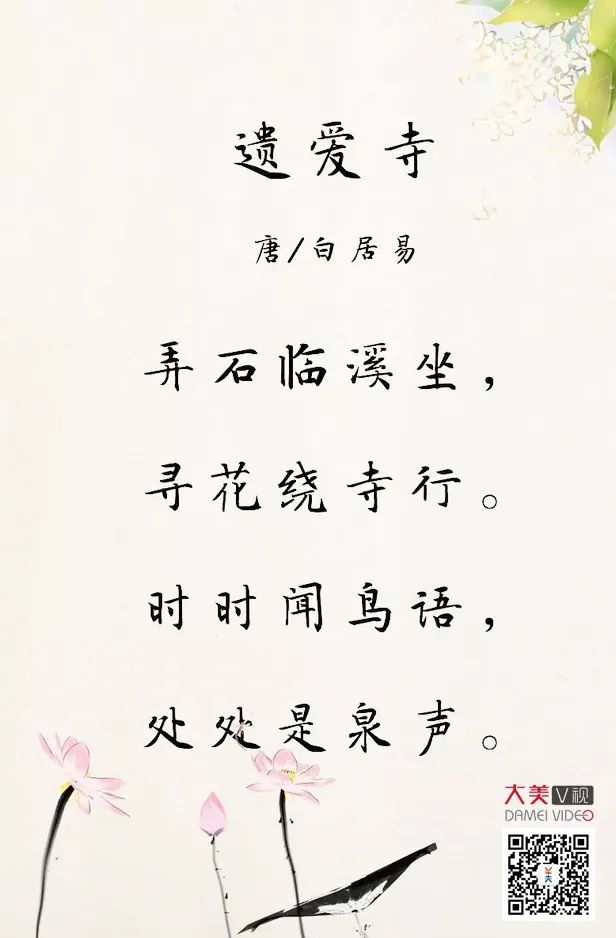 遗爱寺
唐/白居易
弄石临溪坐，
寻花绕寺行。
时时闻鸟语，
处处是泉声。
大美V视
DAMEI VIDEO